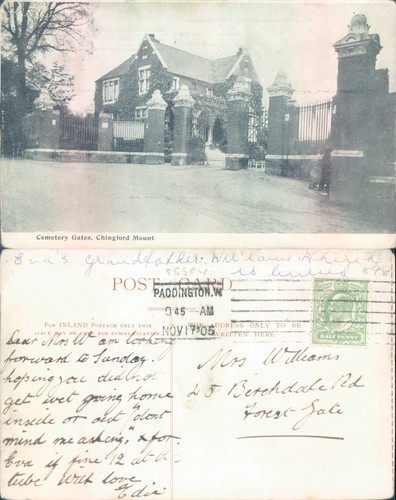 Cemetery Gates, Chingford Mount
Eva's Grandfather William
is buried
POST CARD
PADDINGTON.W
945 AM
NOV 17 05
FOR INLAND POSTAGE ONLY THIS
ADDRESS ONLY TO BE
WRITTEN HERE
HALF PENNY
Dear Mrs W am looking
forward to Sunday.
hoping you did not
get wet going home
inside or out "dont
mind me asking," for
Eva if fine 12 at the
tube With love
Edie
Mrs Williams
45 Berchdale Rd
Forest Gate